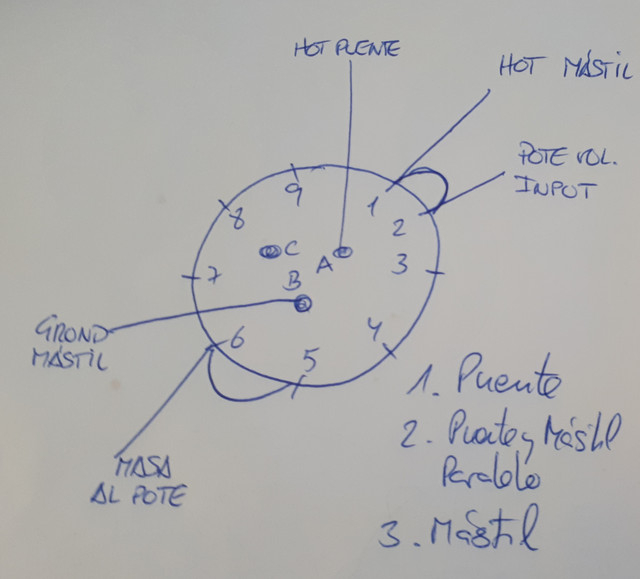 HOT PUENTE
HOT MÁSTIL
POTE VOL.
INPUT
9
1
8
2
C
A
3
7
B
GROND
MÁSTIL
6
4
5
MASA
AL POTE
1. Puente
2. Puente y Mástil
Paralelo
3. Mástil